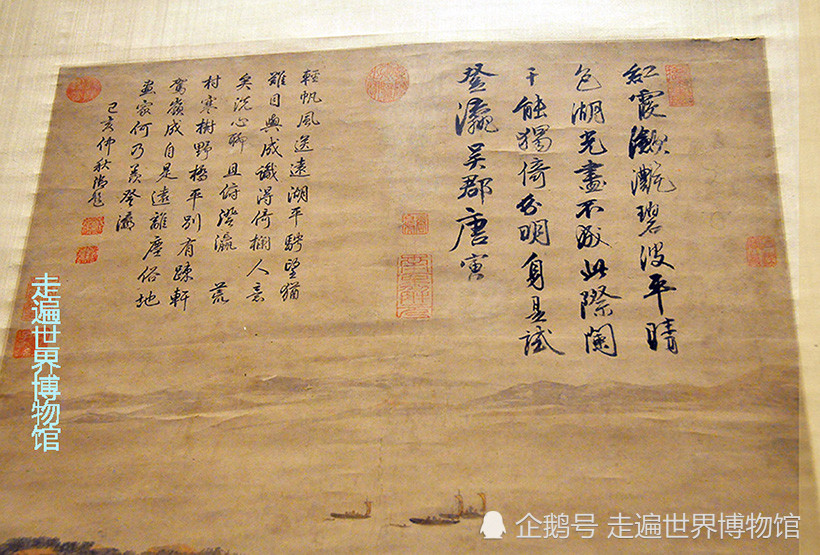 紅霞瀲灧碧波平晴
色湖光畫不成此際闌
干能獨倚分明身是試
登瀛吳郡唐寅
輕帆風送遠湖平騁望猶
難目與成識得倚欄人意
矣洗心聊且俯澄瀛 荒
村寒樹野橋平別有疎軒
駕嶺成自是遠離塵俗地
畫家何乃羨登瀛
己亥仲秋御題
走遍世界博物馆
企鹅号 走遍世界博物馆